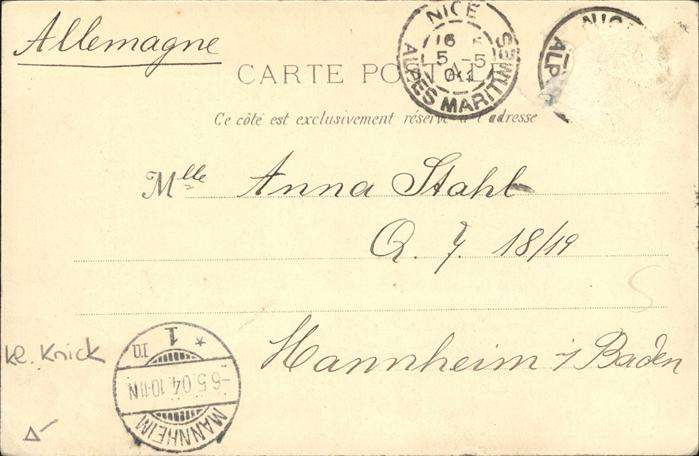 Allemagne
NICE
16
5 -5
04
ALPES MARITIMES
NIC
ALP
CARTE POSTALE
Ce côté est exclusivement réservé à l'adresse
Mlle Anna Stahl
Q. 7. 18/19
Mannheim i/Baden
kl. Knick
MANNHEIM
-6.5.04.10-11N
* 1